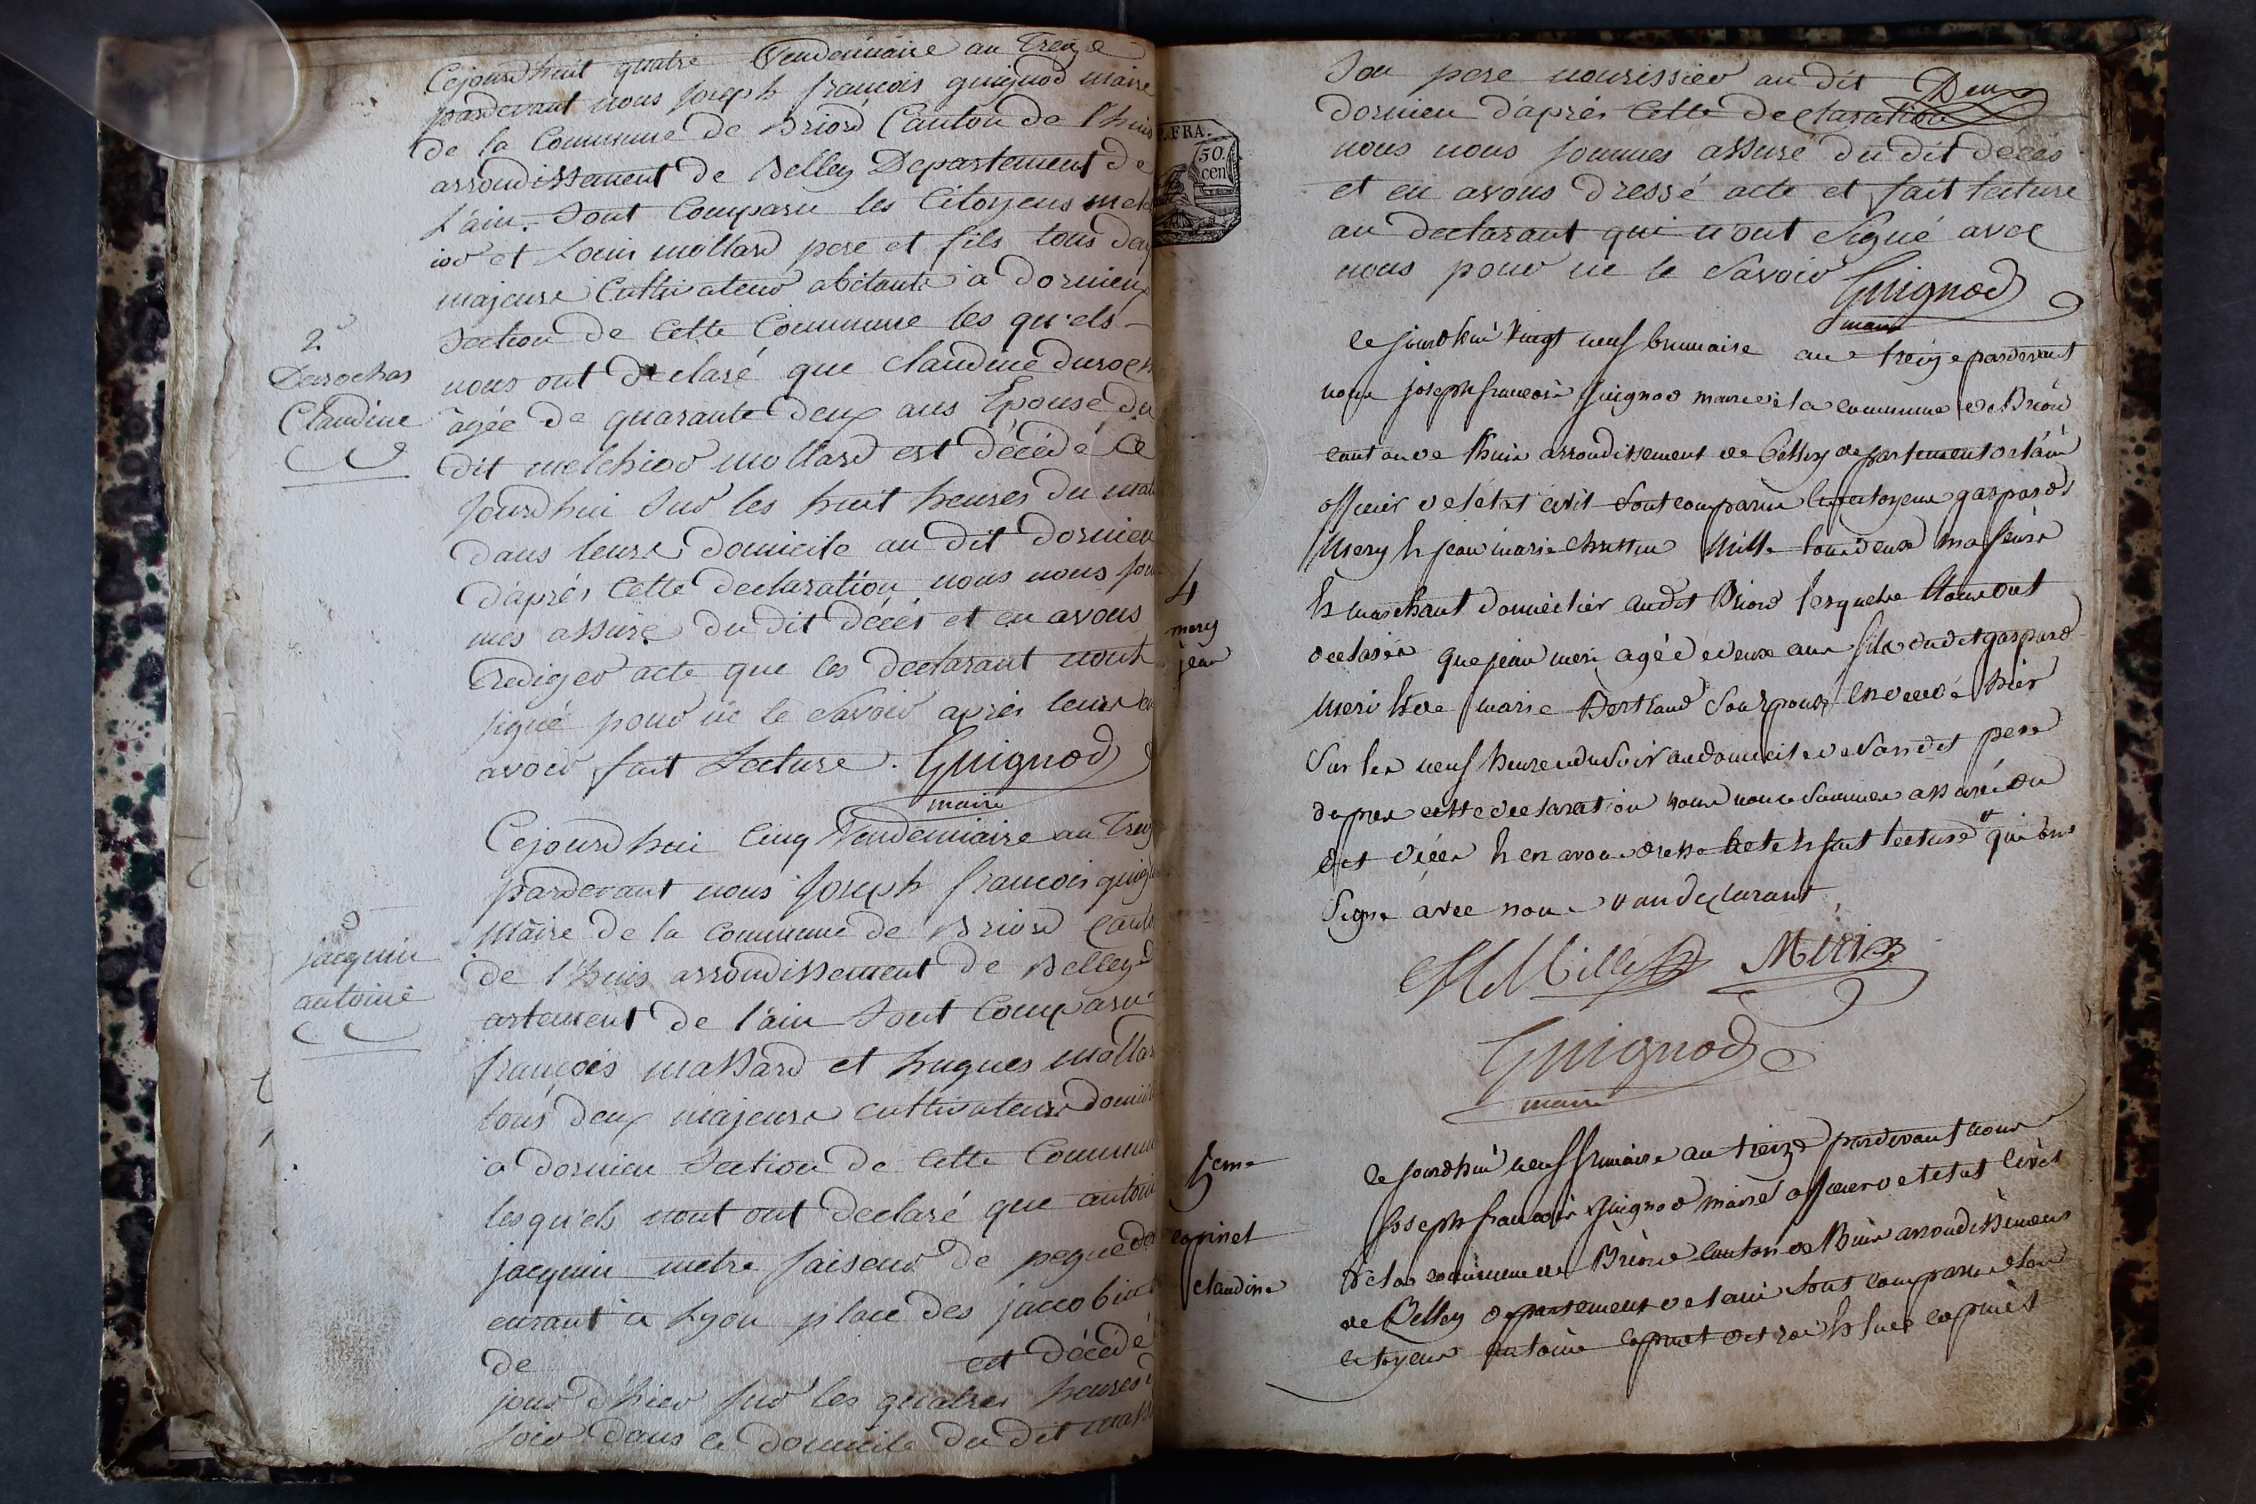 Cejourdhuit quatre Vendemiaire an Treize
pardevant nous Joseph francois guignod maire
de la Commune de Briord Canton de l'huis
arrondissement de Belley Departement de
L'ain. Sont Comparu les Citoyens melch
ior et Louis mollard pere et fils tous deux
majeurs Cultivateur abitants a dornieu
Section de Cette Commune les quels
nous ont declaré que claudine duroch
âgée de quarante deux ans Epouse du
dit melchior mollard est décédé Ce
jourdhui sur les huit heures du mat
dans leurs domicile au dit dornieu
d'aprés Cette declaration nous nous som
mes assuré du dit décés et en avons
rediger acte que les declarant n'ont
signé pour ne le savoir aprés leurs en
avoir fait Lecture. Guignod
maire
2
Durochas
Claudine
Cejourdhui Cinq Vendemiaire an Treiz
pardevant nous Joseph francois guig
maire de la commune de Briord Cant
de l'huis arrondissement de Belley d
artement de l'ain Sont Comparu
françois massard et hugues mollar
tous deux majeurs cultivateurs domic
a dornieu Section de Cette Commun
lesquels nont ont declaré que antoin
jacquin metre faiseur de pegne de
eurant a Lyon place des jaccobin
de est décédé
jour d'hier sur les quatres heures d
soir dans le domicile du dit mass
3
jacquin
antoine
R.FRA.
50.
cen
Son pere nourissier au dit Deux
dornieu d'aprés Cette declaration
nous nous sommes assuré du dit décés
et en avons dressé acte et fait lecture
au declarant qui n'ont signé avec
nous pour ne le savoir Guignod
maire
4
mery
jean
Ce jourdhui vingt neuf brumaire an treize pardevant
nous joseph francois Guignod maire de la commune de Briord
canton de lhuis arrondissement de Belley departement de l'ain
officier de l'état civil sont comparus les citoyens gaspards
mery & jean marie Mille tous deux majeurs
& marchant domicilier audit Briord lesquels nous ont
declarés que jean meri agé de deux ans fils dudit gaspard
meri & de marie Bertrand son epouse est decedé hier
sur les neuf heure du soir au domicile de sondit pere
dapres cette declaration nous nous sommes assuré du
dit décés & en avons dressé acte & fait lecture qui ont
signé avec nous aux declarant
Mille Meri
Guignod
maire
5eme
copinet
claudine
Ce jourdhui neuf frimaire an treize pardevant nous
Joseph francois Guignod maire officier de letat civil
de la commune de Briord canton de lhuis arrondissement
de Belley departement de lain sont comparu
citoyens antoine copinet dit & copinet